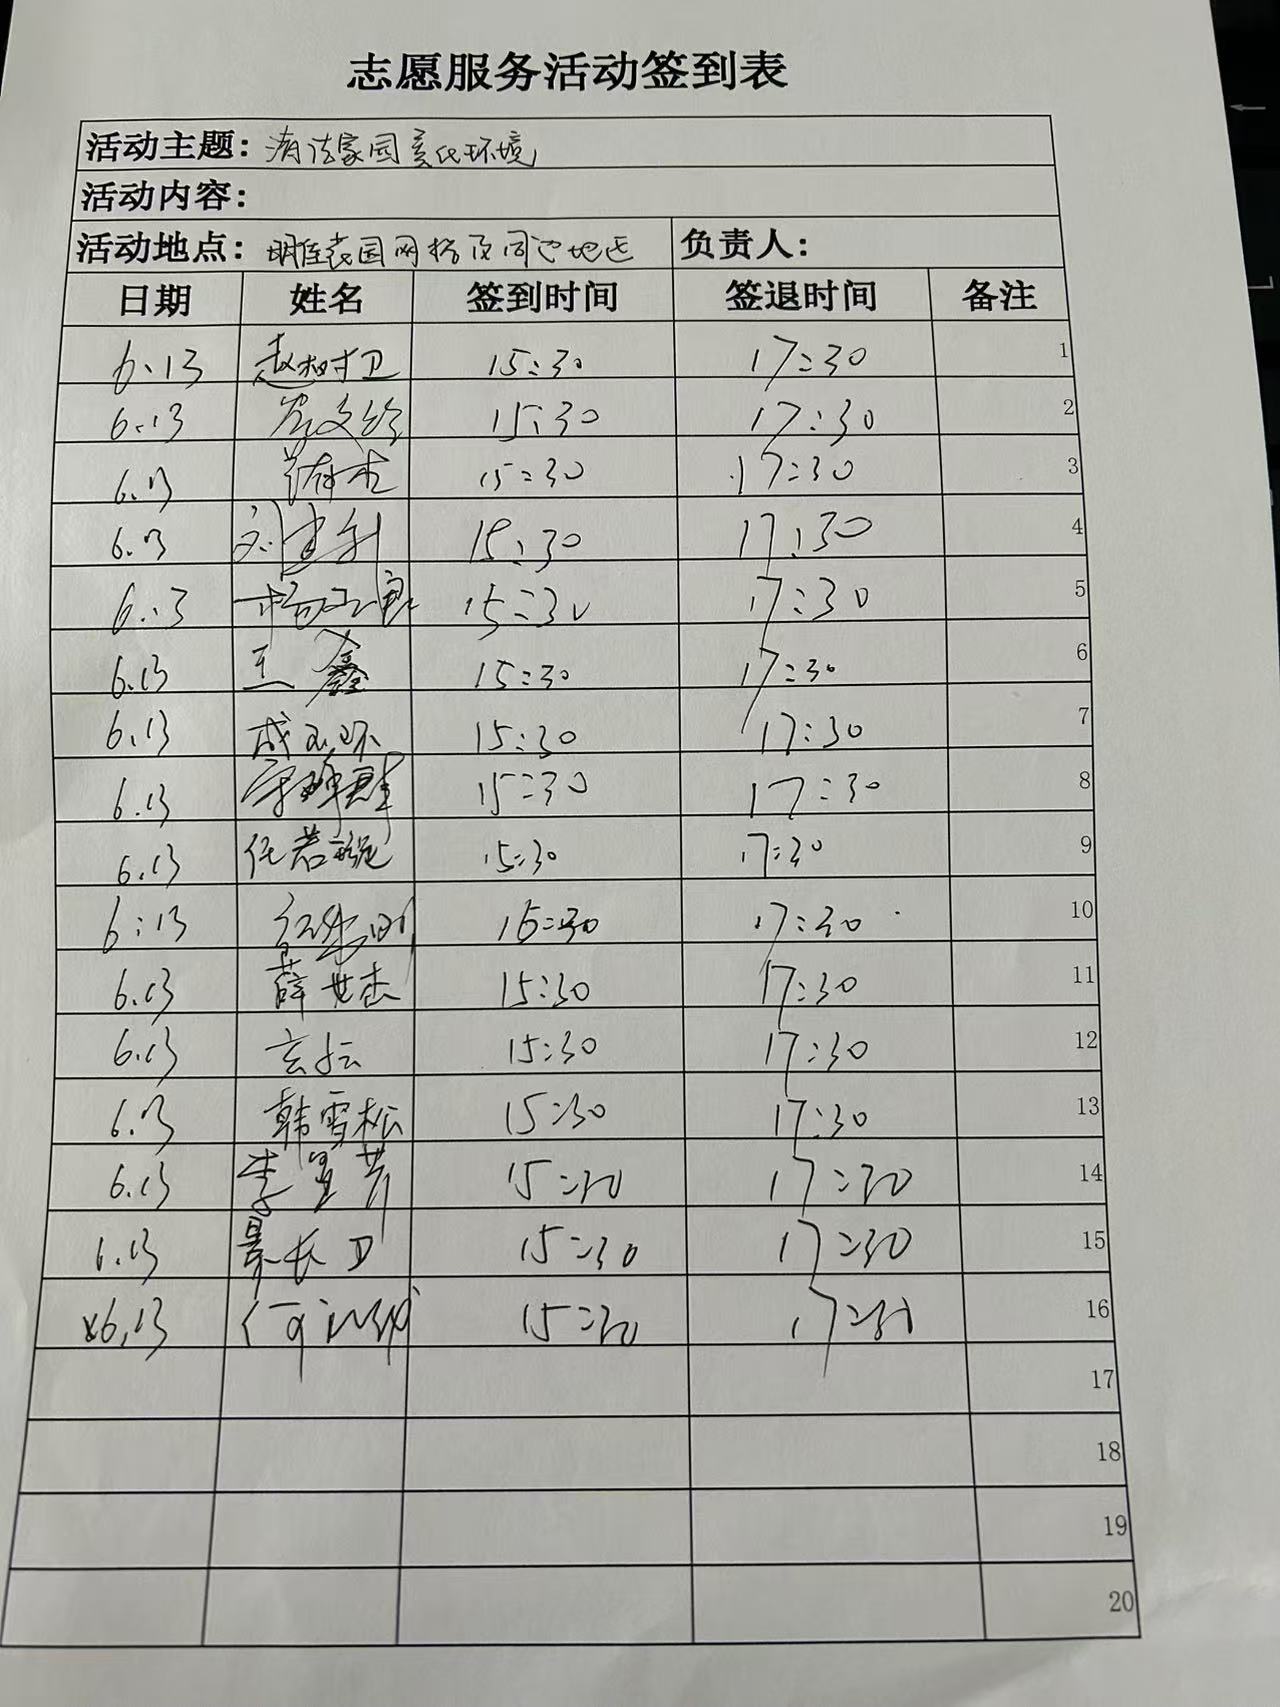 志愿服务活动签到表
活动主题: 清洁家园美化环境
活动内容:
活动地点: 明佳花园网格及同心地运 负责人:
日期 姓名 签到时间 签退时间 备注
6.13 赵树卫 15:30 17:30 1
6.13 15:30 17:30 2
6.13 15:30 17:30 3
6.13 刘 15:30 17:30 4
6.13 杨 15:30 17:30 5
6.13 王鑫 15:30 17:30 6
6.13 成玉环 15:30 17:30 7
6.13 15:30 17:30 8
6.13 任若 15:30 17:30 9
6:13 15:30 17:30 10
6.13 薛世杰 15:30 17:30 11
6.13 15:30 17:30 12
6.13 韩雪松 15:30 17:30 13
6.13 李星芳 15:30 17:30 14
6.13 景长卫 15:30 17:30 15
6.13 何 15:30 17:30 16
17
18
19
20